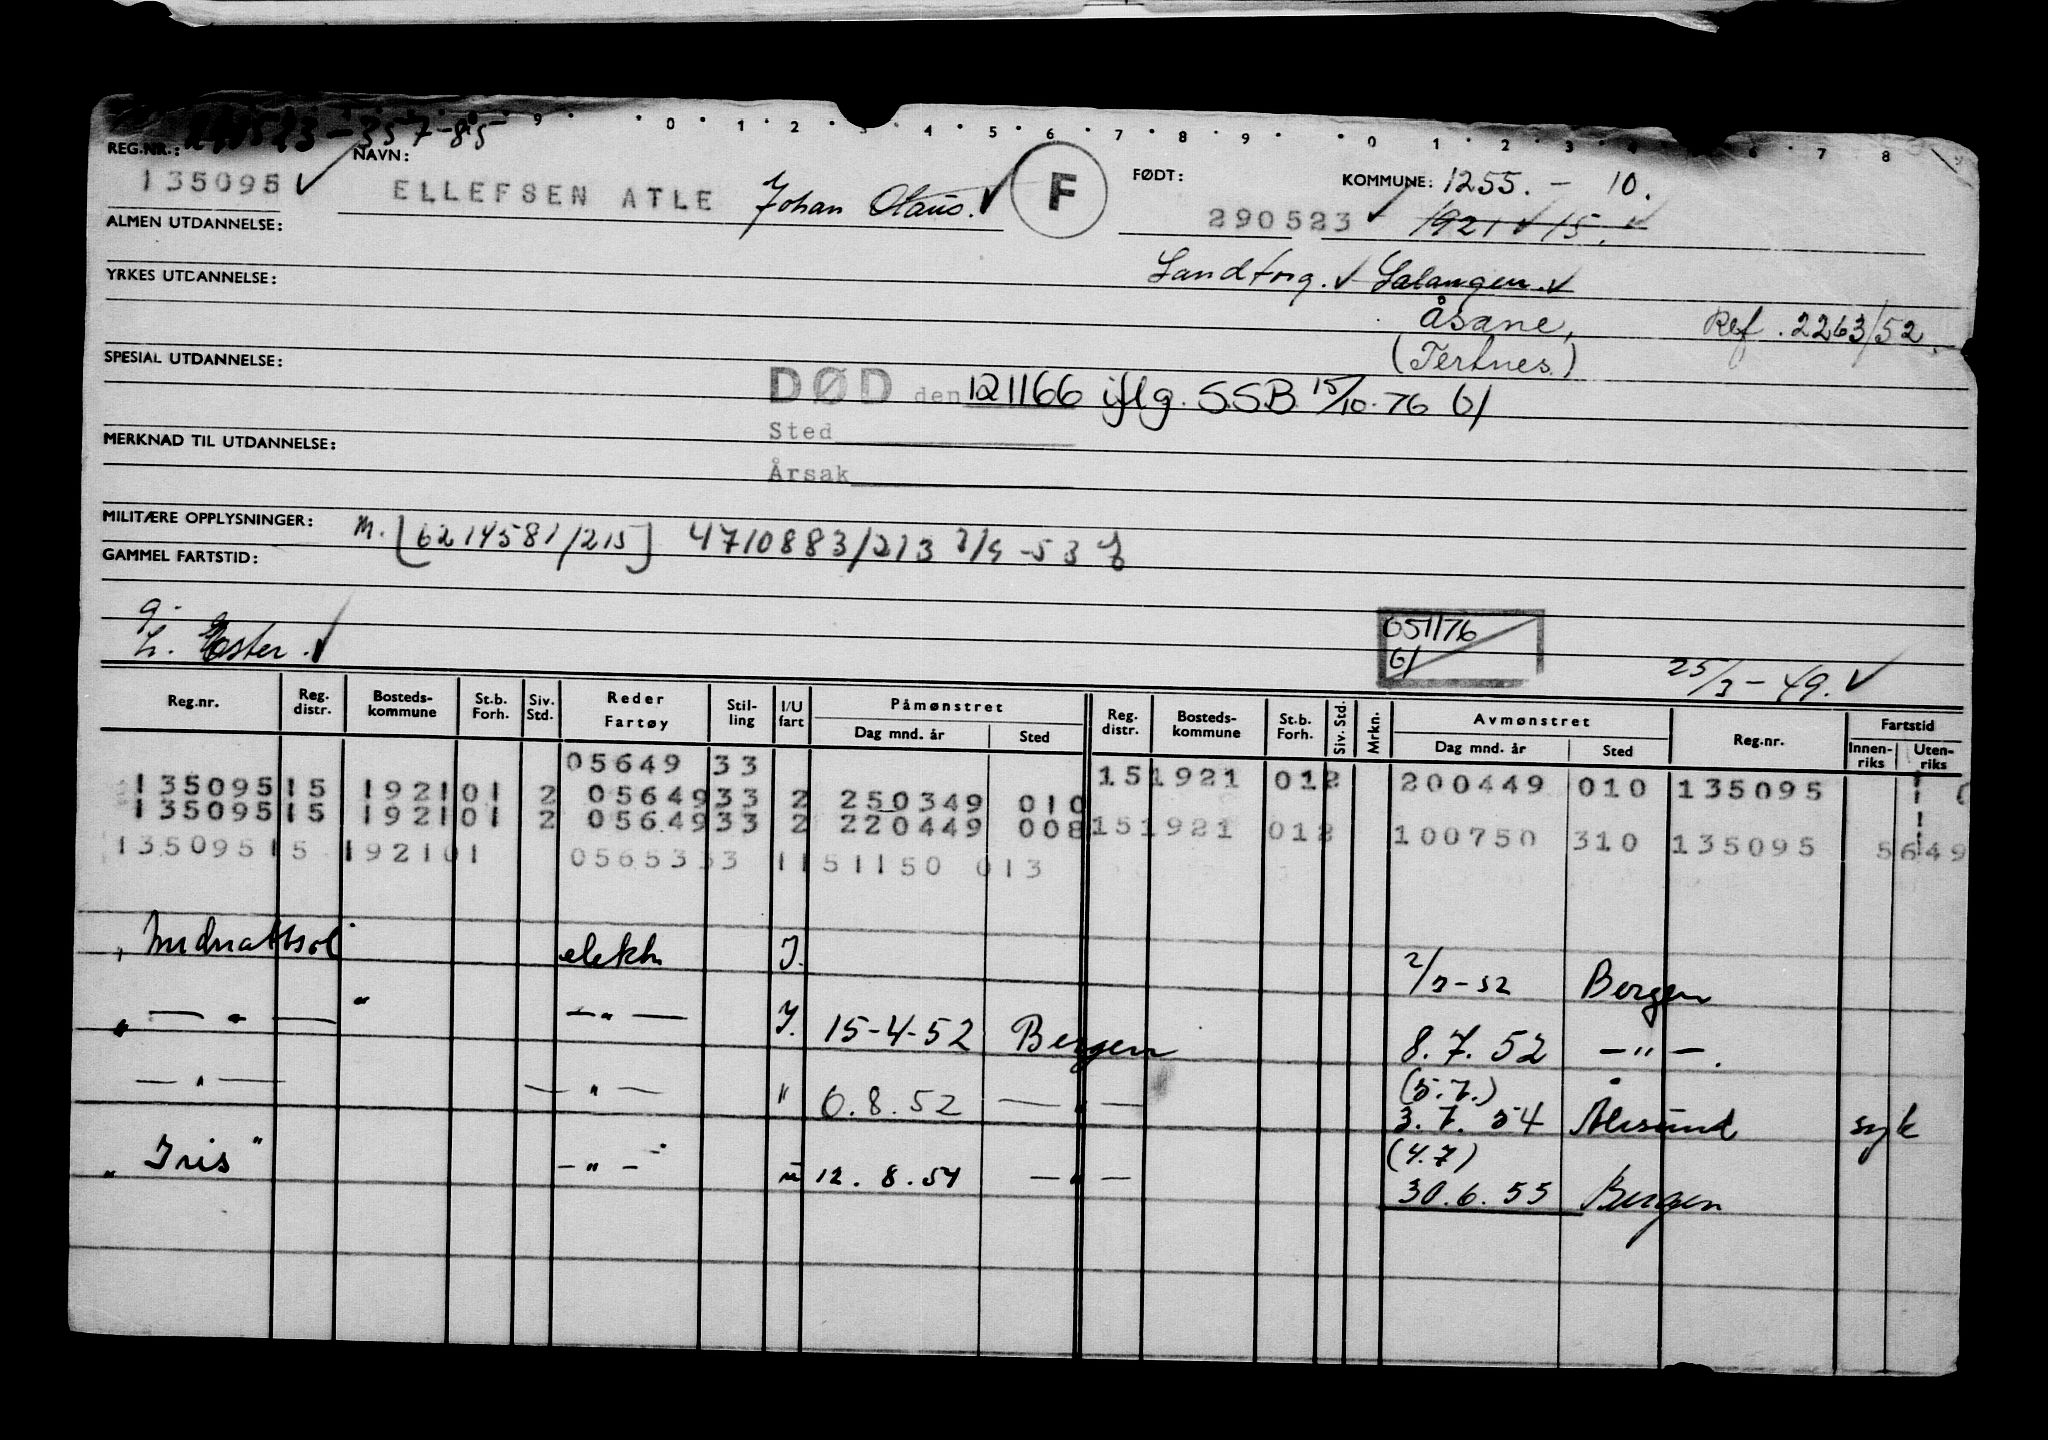 9 0 1 2 3 4 5 6 7 8 9 0 1 2 3 4 6 7 8
-357-85
REG.NR.: NAVN: FØDT: KOMMUNE: 1255. - 10.
135095 ✓ ELLEFSEN ATLE Johan Olaus. ✓ F 290523 ✓ 1921 ✓ 15. ✓
ALMEN UTDANNELSE:
Sandtorg. ✓ Salangen. ✓
YRKES UTDANNELSE:
Åsane, Ref. 2263/52.
(Tertnes)
SPESIAL UTDANNELSE:
DØD den 121166 iflg. SSB 15/10-76 GI
Sted
MERKNAD TIL UTDANNELSE:
Årsak
MILITÆRE OPPLYSNINGER: M. [6214581/215] 4710883/213 7/4-53
GAMMEL FARTSTID:
g.
L. Ester. ✓
651/76
GI
25/3-49. ✓
Reg.nr. Reg. distr. Bosteds-kommune St.b. Forh. Siv. Std. Reder Fartøy Stil-ling I/U fart Påmønstret Dag mnd. år Sted Reg. distr. Bosteds-kommune St.b. Forh. Siv. Std. Mrkn. Avmønstret Dag mnd. år Sted Reg.nr. Fartstid Innen-riks Uten-riks
05649 33
135095 15 1921 01 2 05649 33 2 250349 010 15 1921 01 2 200449 010 135095 1
135095 15 1921 01 2 05649 33 2 220449 008 15 1921 01 2 100750 310 135095 5649
135095 15 1921 01 05653 33 1 151150 013
" Midnattsol " elektr I. 2/7-52 Bergen
" — " — " — " — I. 15-4-52 Bergen 8.7.52 — " —.
(5.7.)
— " — — " — " 6.8.52 — " — 3.7.54 Ålesund syk
(4.7)
" Iris " — " — u 12.8.54 — " — 30.6.55 Bergen